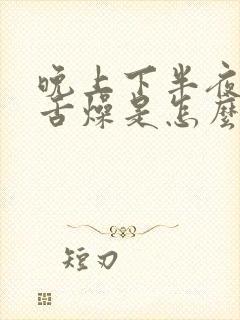 晚上下半夜
舌燥是怎麼
短刃